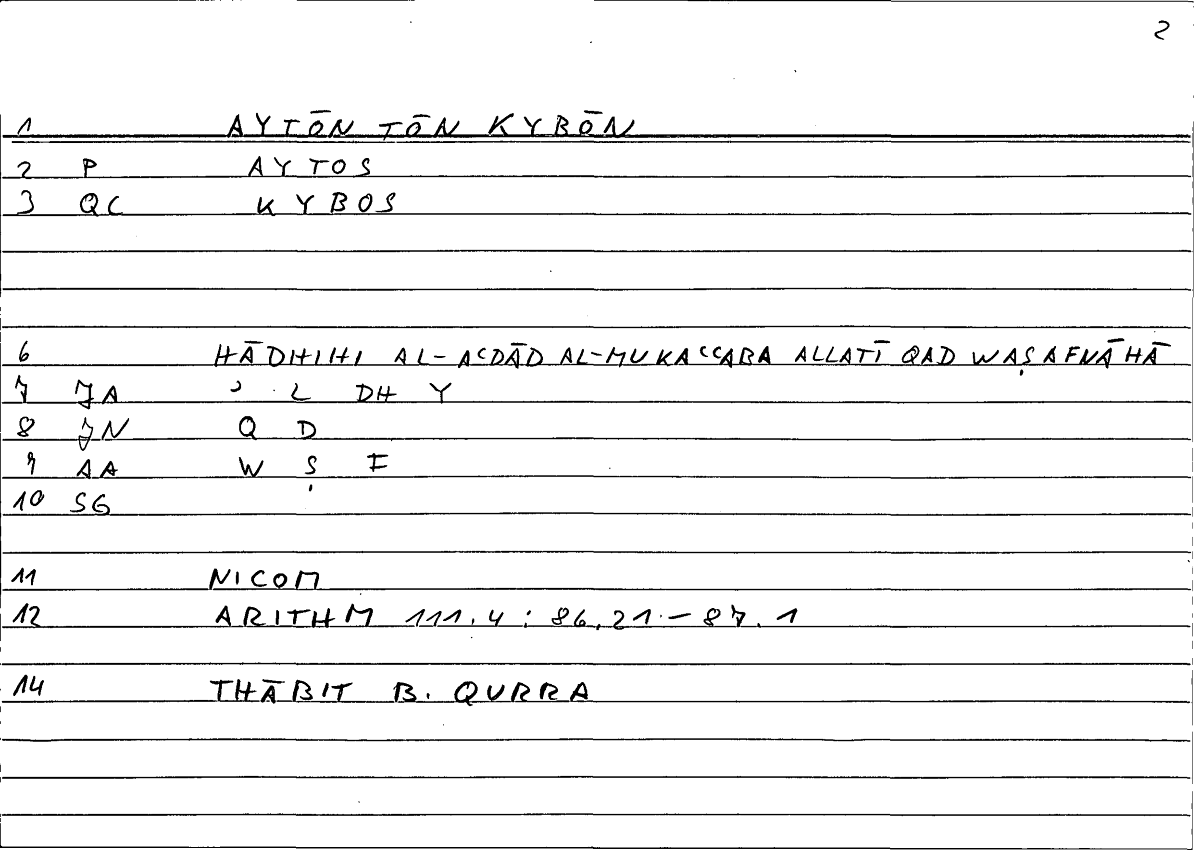 2
1 AYTŌN TŌN KYBŌN
2 P AYTOS
3 QC KYBOS
6 HĀDHIHI AL-ACDĀD AL-MUKACCABA ALLATĪ QAD WAṢAFNĀHĀ
7 JA ʾ L DH Y
8 JN Q D
9 AA W Ṣ F
10 SG
11 NICOM
12 ARITHM 111.4 : 86.21.-87.1
14 THĀBIT B. QURRA